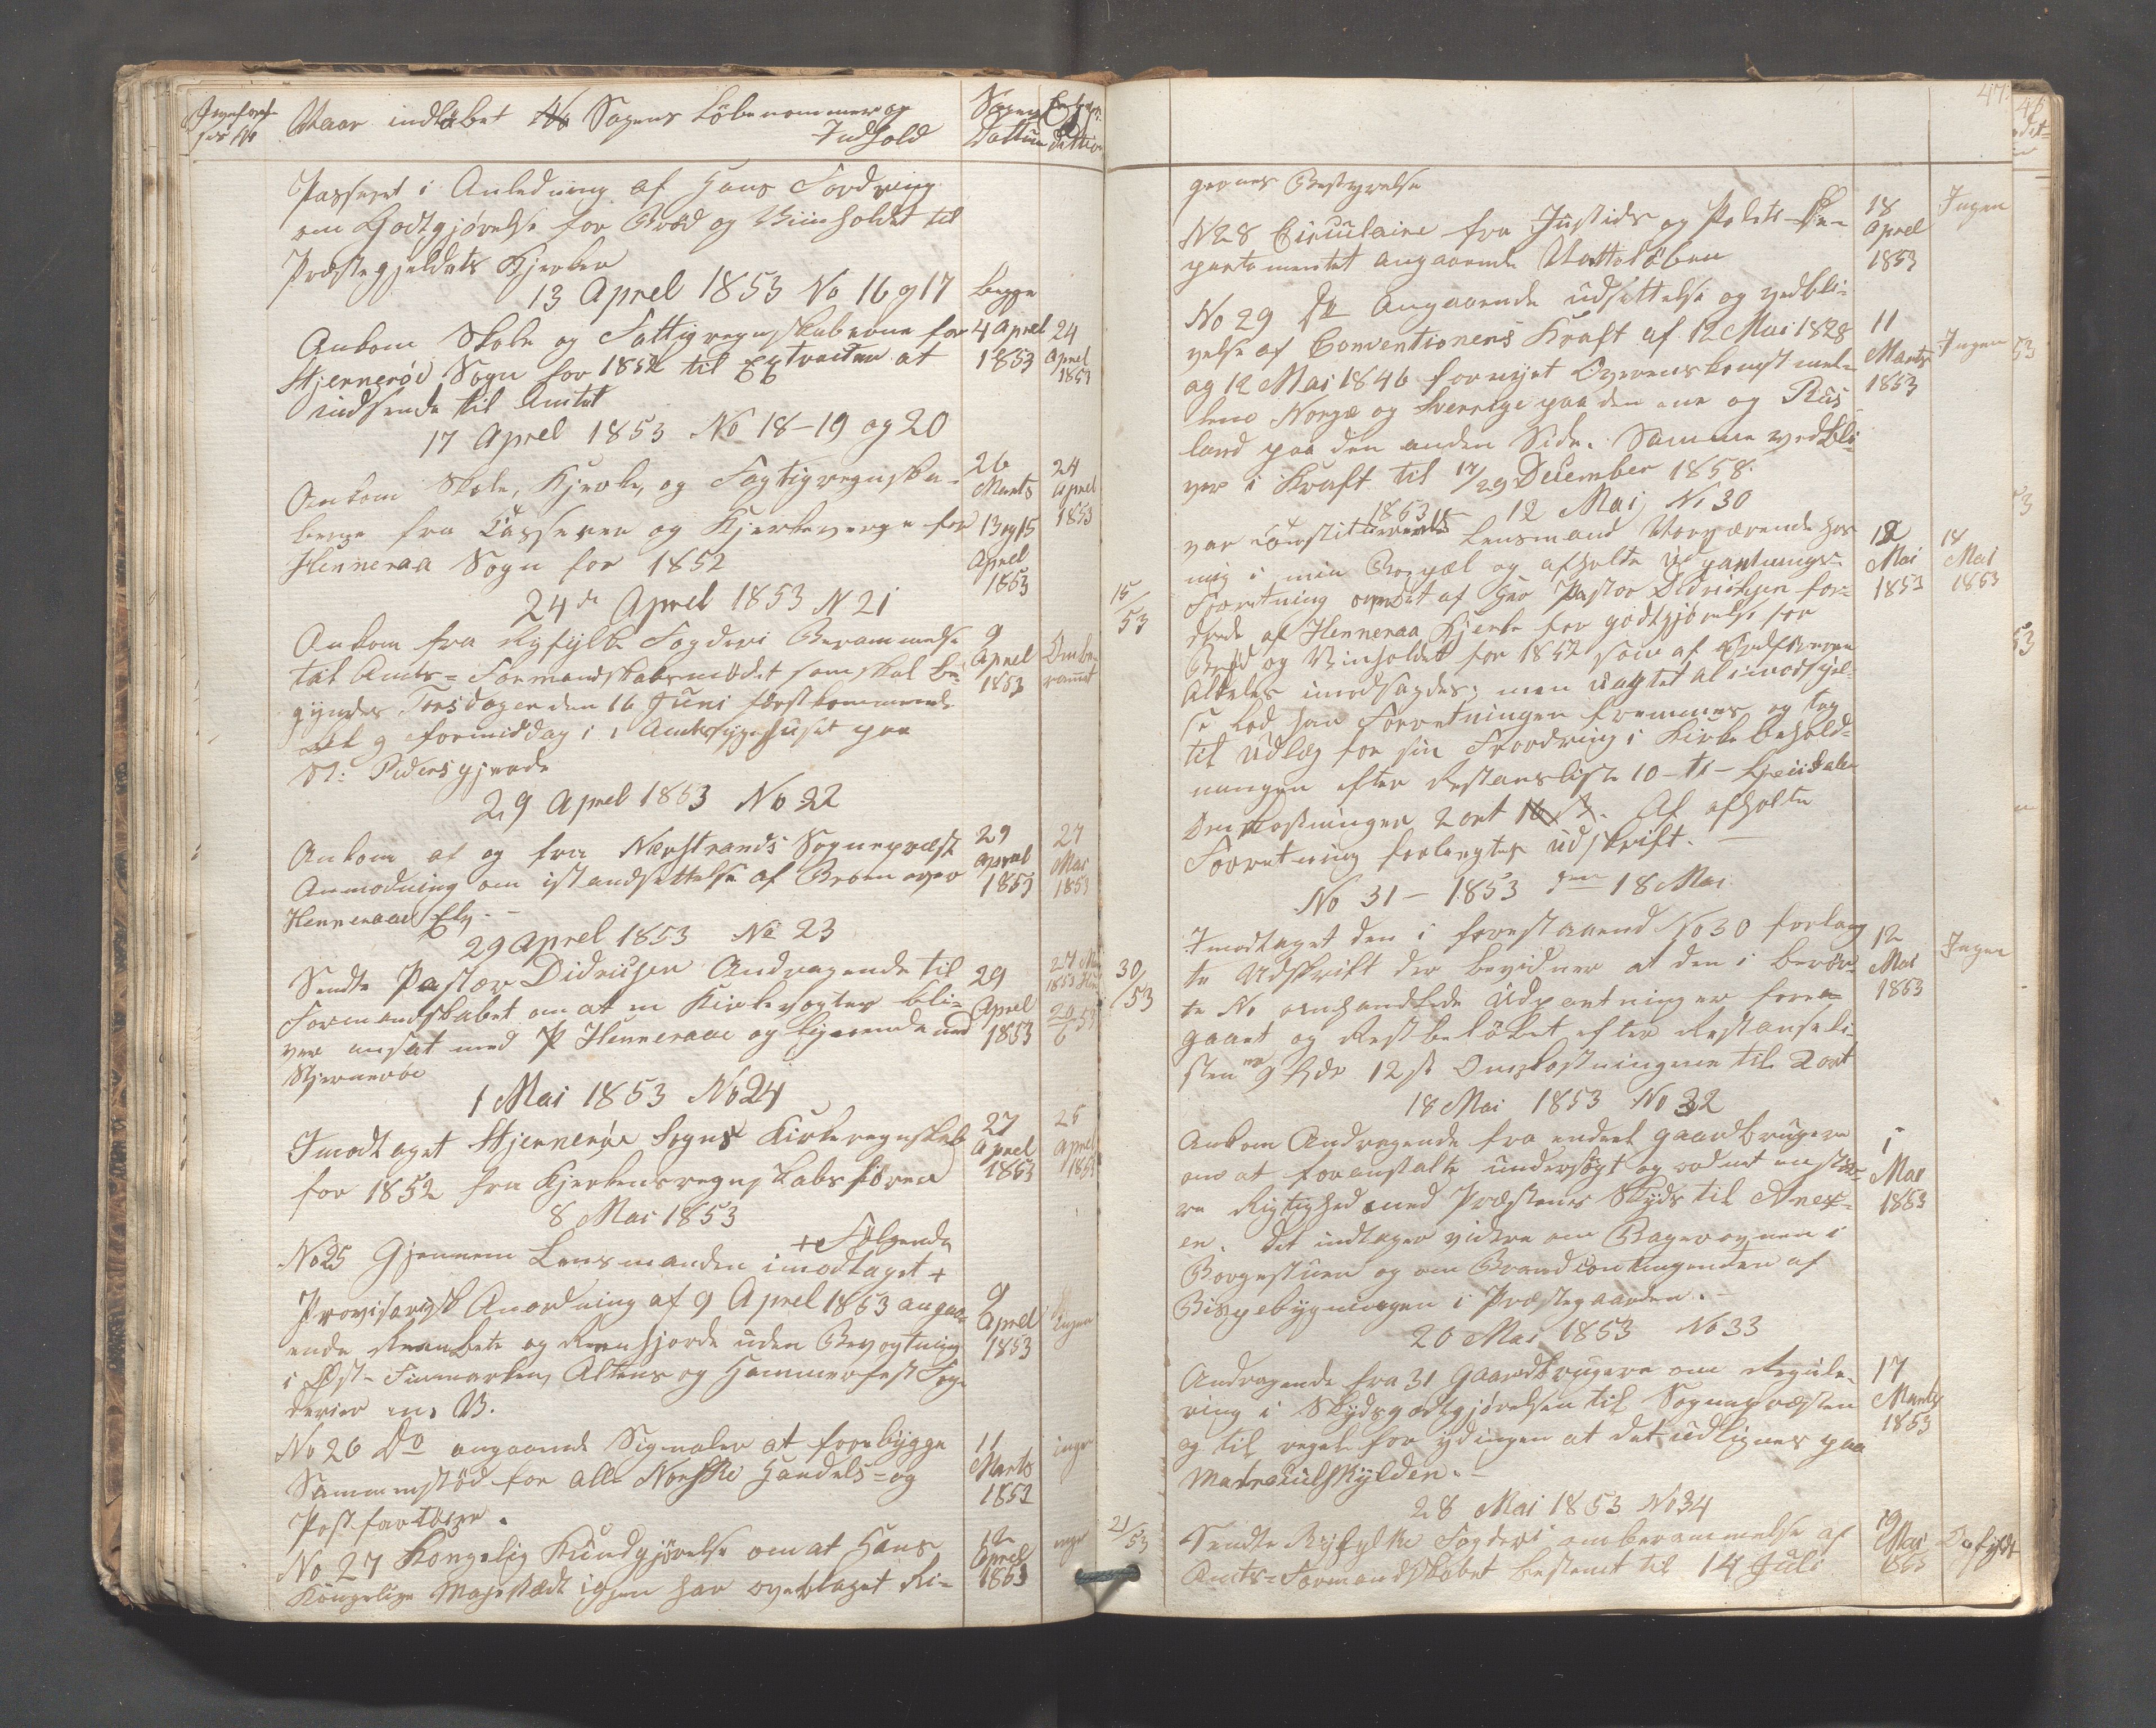 Naar indløbet No Sagens Løbenommer og
Indhold
Sagens
Dattum
Passeret i Anledning af Hans Fordring
om Godtgjørelse for Brød og Viinholdet til
Præstegjeldets Kjerker
13 Aprel 1853 No 16 og 17
Ankom Skole og Fattigregnskaberne for
Hjernerøe Sogn for 1852 til Extracter at
indsende til Amtet
begge
4 Aprel
1853
24
Aprel
1853
17 Aprel 1853 No 18-19 og 20
Ankom Skole, Kjerke, og Fattigregnska-
berne fra Casseren og Kjerkeverge for
Hinneraa Sogn for 1852
26
Marts
13 og 15
Aprel
1853
24
Aprel
1853
24de Aprel 1853 N 21
Ankom fra Ryfylke Fogderi Berammelse
til Amts-Formandskabsmødet som skal be-
gyndes Torsdagen den 16 Juni førstkommende
Kl 9 formiddag i Amtssygehuset paa
St: Pedersgjerde
9
Aprel
1853
Omberammet
29 Aprel 1853 No 22
Ankom af og fra Nærstrands Sognepræst
Anmodning om istandsettelse af Broen over
Henneraae Elv.
29
Aprel
1853
27
Mai
1853
29 Aprel 1853 No 23
Sendte Pastor Didriksen Andragende til
Formandskabet om at en Kirkesogter bli-
ver ansat med P Henneraae og ligeurende ved
Stjernerøe
29
Aprel
1853
27 Mai
1853
20/6 53
1 Mai 1853 No 24
Imodtaget Hjernerøe Sogns Kirkeregnskab
for 1852 fra Kjerkensregnskabsfører
27
Aprel
1853
25
Aprel
1853
8 Mai 1853
No 25 Gjennem Lensmanden imodtaget +
+ Følgende
Provisorisk Anordning af 9 Aprel 1853 angaa-
ende Reenbete og Reenhjorde uden Bevogtning
i Øst-Finmarken, Altens og Hammerfest Fog-
derier
9
Aprel
1853
Ingen
No 26 Do angaaende Signaler at forebygge
Sammenstød for alle Norske Handels- og
Postfartøier.
11
Marts
1853
ingen
No 27 Kongelig Kundgjørelse om at Hans
Kongelige Majestædt igjen har overtaget Ri-
12
Aprel
1853
inge
47
gernes Bestyrelse
N 28 Circulaire fra Justids og Polits-De-
partementet angaaende Nattesøben
18
Aprel
1853
Ingen
No 29 Do Angaaende udsettelse og vedbli-
velse af Conventionens Kraft af 12 Mai 1828
og 12 Mai 1846 fornyet Overenskomst mel-
lem Norge og Sverrige paa den ene og Rus-
land paa den anden Side. Samme vedbli-
ver i Kraft til 17/29 December 1858.
11
Marts
1853
Ingen
1853 12 Mai No 30
var Constitueret Lensmand Nærværende hos
mig i min Bopæl og afholte Udpantnings-
Forretning omedet af Her Pastor Didriksen for-
drede af Henneraa Kjerke for godtgjørelse for
Brød og Vinholdet for 1852 som af Ordføreren
Aldeles imodsagdes; men uagtet al imodsigel-
se lod han Forretningen fremmes og tog
til udlæg for sin Fordring i Kirkebehold-
ningen efter Restanseliste 10 -
Omkostninger 2 ort 16 s. Af afholte
Forretning forlangtes udskrift.
15/53
12
Mai
1853
18
Mai
1853
No 31 - 1853 den 18 Mai
Imodtaget den i forestaaend No 30 forlang-
te Udskrift der bevidner at den i berør-
te No omhandlede Udpantninger forega-
gaaet og Restbeløbet efter Restanseli-
sten er 9 Spd 12 s Omkostningerne til 2 ort
30/53
12
Mai
1853
Ingen
18 Mai 1853 No 32
Ankom Andragende fra endeel gaardbrugere
om at foranstalte undersøgt og ordnet en stør-
re Rigtighed med Præstens Skyds til Anex-
en. Det indtager videre om Bagerovnen i
Borgestuen og om Brandcontingenten af
Bispebygningen i Præstegaarden.
1
Mai
1853
20 Mai 1853 No 33
Andragende fra 31 Gaardbrugere om Regule-
ring i Skydsgodtgjørelsen til Sognepræsten
og til regel for ydingen at det udlignes paa
Matraculskylden.
17
Marts
1853
28 Mai 1853 No 34
Sendte Ryfylke Fogderi omberammelse af
Amts-Formandskabet bestemt til 14 Juli
21/53
19
Mai
1853